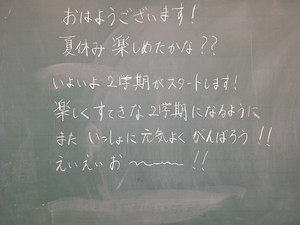 おはようございます!
夏休み楽しめたかな??
いよいよ2学期がスタートします!
楽しくすてきな2学期になるように
また いっしょに元気よく がんばろう!!
えいえいお〜〜〜!!